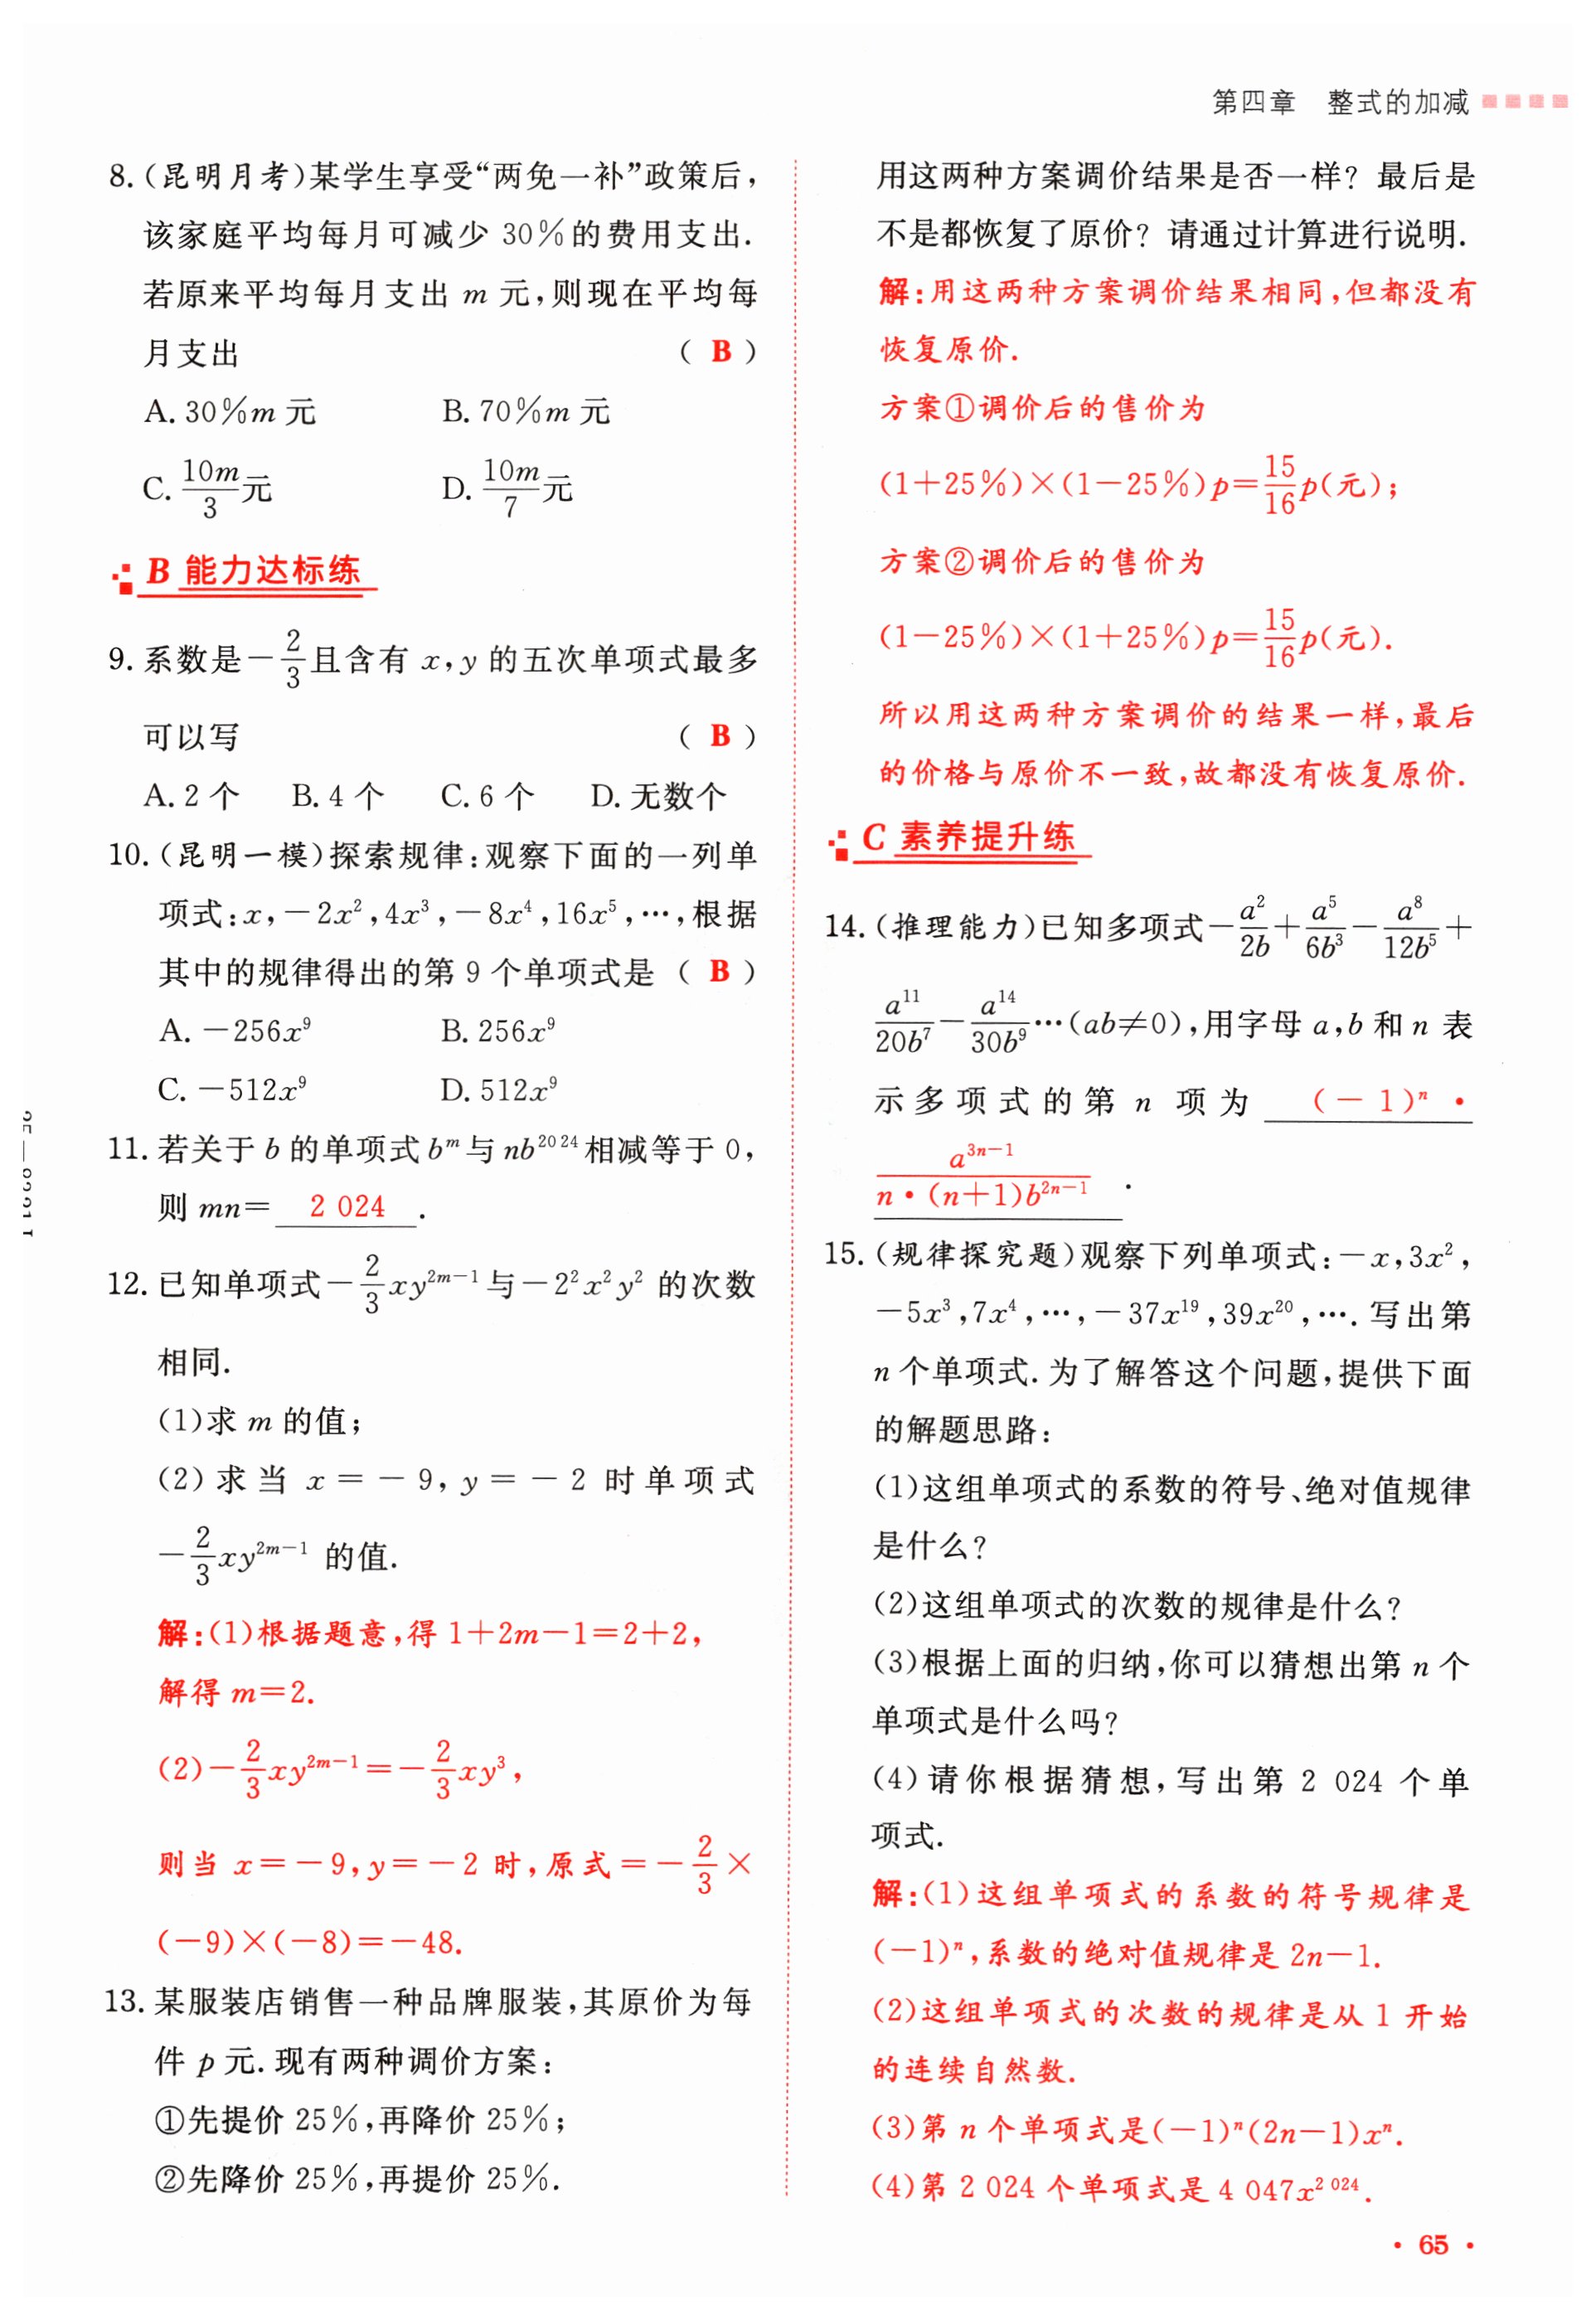 第四章 整式的加减
8.(昆明月考)某学生享受“两免一补”政策后,
该家庭平均每月可减少 30%的费用支出.
若原来平均每月支出 m 元,则现在平均每
月支出 ( B )
A. 30%m 元 B. 70%m 元
C. \frac{10m}{3}元 D. \frac{10m}{7}元
B 能力达标练
9. 系数是-\frac{2}{3}且含有 x,y 的五次单项式最多
可以写 ( B )
A. 2 个 B. 4 个 C. 6 个 D. 无数个
10.(昆明一模)探索规律:观察下面的一列单
项式:x,-2x²,4x³,-8x⁴,16x⁵,…,根据
其中的规律得出的第 9 个单项式是 ( B )
A. -256x⁹ B. 256x⁹
C. -512x⁹ D. 512x⁹
11. 若关于 b 的单项式 b^{m} 与 nb^{2024} 相减等于 0,
则 mn= 2 024 .
12. 已知单项式-\frac{2}{3}xy^{2m-1}与-2²x²y² 的次数
相同.
(1)求 m 的值;
(2)求当 x=-9,y=-2 时单项式
-\frac{2}{3}xy^{2m-1} 的值.
解:(1)根据题意,得 1+2m-1=2+2,
解得 m=2.
(2)-\frac{2}{3}xy^{2m-1}=-\frac{2}{3}xy³,
则当 x=-9,y=-2 时,原式=-\frac{2}{3}×
(-9)×(-8)=-48.
13. 某服装店销售一种品牌服装,其原价为每
件 p 元.现有两种调价方案:
①先提价 25%,再降价 25%;
②先降价 25%,再提价 25%.
用这两种方案调价结果是否一样? 最后是
不是都恢复了原价? 请通过计算进行说明.
解:用这两种方案调价结果相同,但都没有
恢复原价.
方案①调价后的售价为
(1+25%)×(1-25%)p=\frac{15}{16}p(元);
方案②调价后的售价为
(1-25%)×(1+25%)p=\frac{15}{16}p(元).
所以用这两种方案调价的结果一样,最后
的价格与原价不一致,故都没有恢复原价.
C 素养提升练
14.(推理能力)已知多项式-\frac{a²}{2b}+\frac{a⁵}{6b³}-\frac{a⁸}{12b⁵}+
\frac{a^{11}}{20b⁷}-\frac{a^{14}}{30b⁹}…(ab≠0),用字母 a,b 和 n 表
示多项式的第 n 项为 (-1)^{n} ·
\frac{a^{3n-1}}{n·(n+1)b^{2n-1}} .
15.(规律探究题)观察下列单项式:-x,3x²,
-5x³,7x⁴,…,-37x^{19},39x^{20},….写出第
n 个单项式.为了解答这个问题,提供下面
的解题思路:
(1)这组单项式的系数的符号、绝对值规律
是什么?
(2)这组单项式的次数的规律是什么?
(3)根据上面的归纳,你可以猜想出第 n 个
单项式是什么吗?
(4)请你根据猜想,写出第 2 024 个单
项式.
解:(1)这组单项式的系数的符号规律是
(-1)^{n},系数的绝对值规律是 2n-1.
(2)这组单项式的次数的规律是从 1 开始
的连续自然数.
(3)第 n 个单项式是(-1)^{n}(2n-1)x^{n}.
(4)第 2 024 个单项式是 4 047x^{2 024}.
· 65 ·